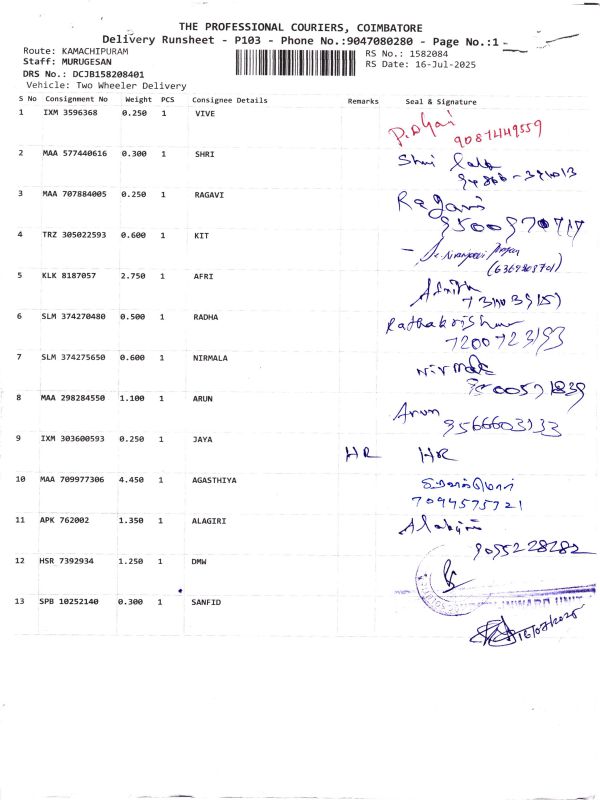 THE PROFESSIONAL COURIERS, COIMBATORE
Delivery Runsheet - P103 - Phone No.:9047080280 - Page No.:1
Route: KAMACHIPURAM RS No.: 1582084
Staff: MURUGESAN RS Date: 16-Jul-2025
DRS No.: DCJB158208401
Vehicle: Two Wheeler Delivery
S No Consignment No Weight PCS Consignee Details Remarks Seal & Signature
1 IXM 3596368 0.250 1 VIVE
9087449559
2 MAA 577440616 0.300 1 SHRI
Shri
3 MAA 707884005 0.250 1 RAGAVI
Ragavi
9500970717
4 TRZ 305022593 0.600 1 KIT
5 KLK 8187057 2.750 1 AFRI
6 SLM 374270480 0.500 1 RADHA
Rathakrishnan
7200723193
7 SLM 374275650 0.600 1 NIRMALA
Nirmala
8 MAA 298284550 1.100 1 ARUN
Arun
9566603133
9 IXM 303600593 0.250 1 JAYA
HR HR
10 MAA 709977306 4.450 1 AGASTHIYA
7094575721
11 APK 762002 1.350 1 ALAGIRI
9095228282
12 HSR 7392934 1.250 1 DMW
INWARD UNIT
13 SPB 10252140 0.300 1 SANFID
16/07/2025